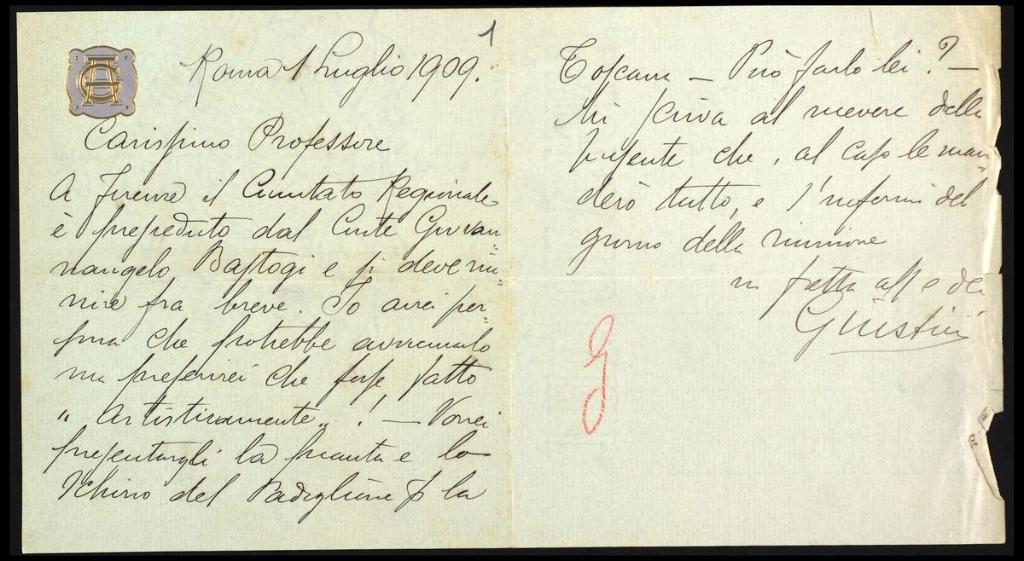 1
Roma 1 Luglio 1909.
Carissimo Professore
A Firenze il Comitato Regionale
è presieduto dal Conte Giovan-
nangelo Bastogi e si deve riu-
nire fra breve. Io avrei per-
sona che potrebbe avvicinarlo
ma preferirei che fosse fatto
"artisticamente"! — Vorrei
presentargli la pianta e lo
schizzo del Padiglione p la
Toscana — Può farlo lei? —
Mi scriva al ricevere della
presente che, al caso le man-
derò tutto, e l'informi del
giorno della riunione
in fretta aff
Giustini
G